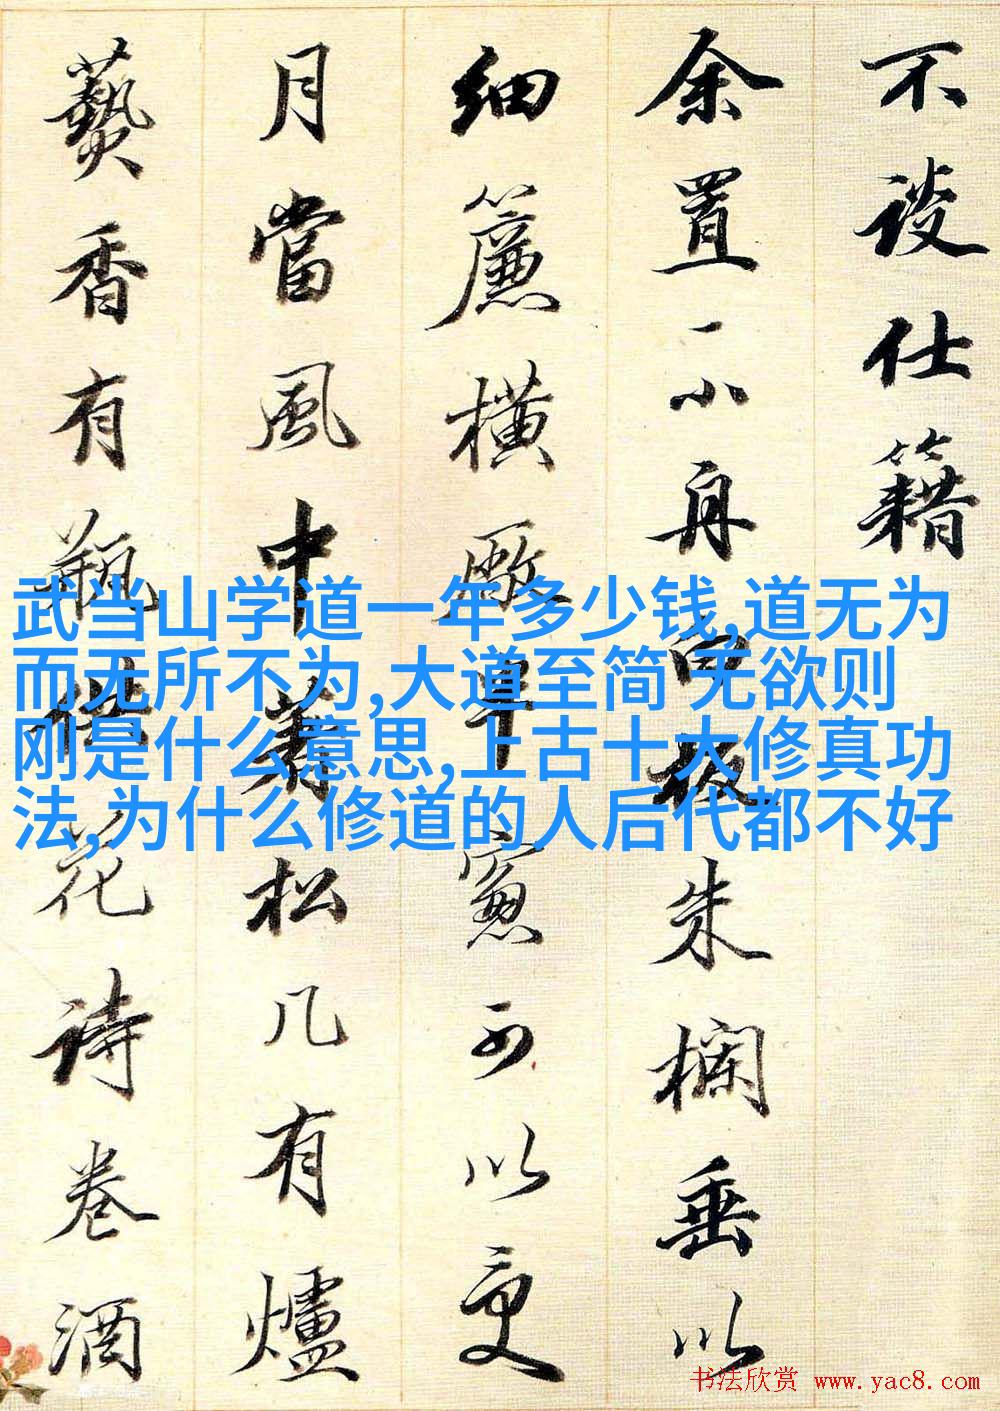 不談仕籍
余置一小舟白板朱欄垂以
細簾橫窻可以受
月當風中松几有爐
爇香有瓶花詩卷酒
武当山学道一年多少钱,道无为
而无所不为,大道至简 无欲则
刚是什么意思,上古十大修真功
法,为什么修道的人后代都不好
书法欣赏 www.yac8.com